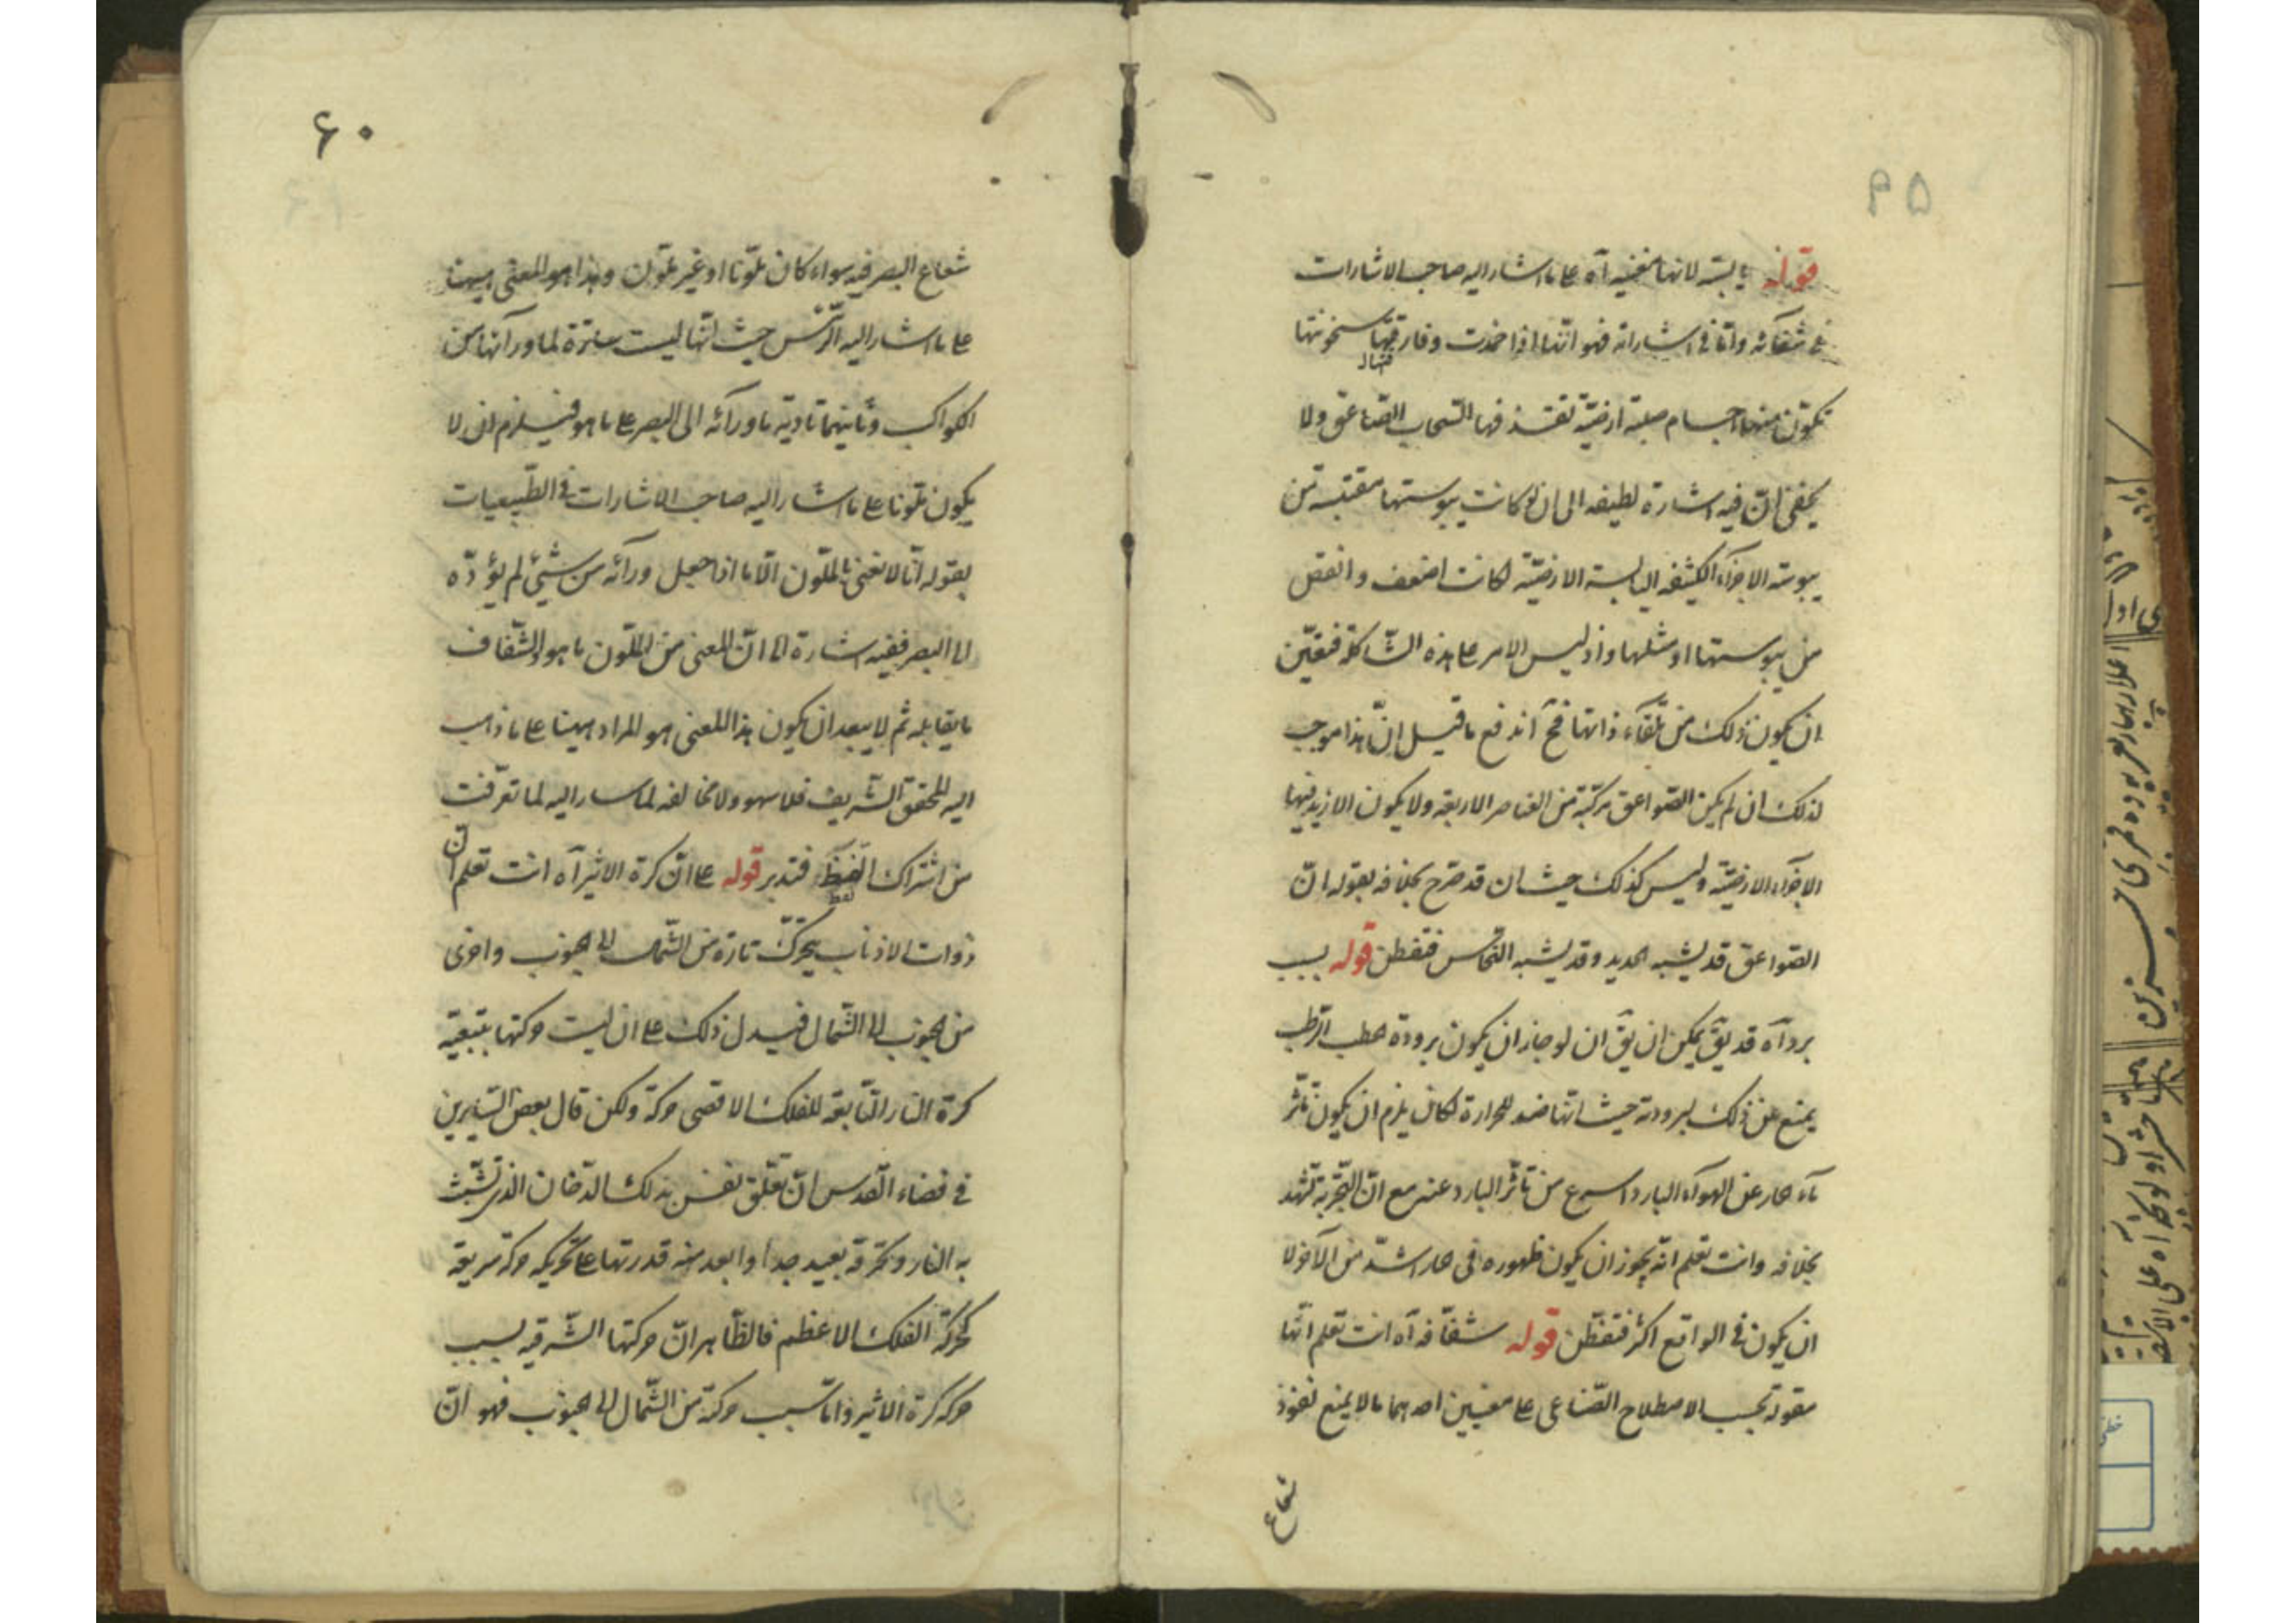 ۵۹
قوله يابسة لانها مفنيه آه على ما اشار اليه صاحب الاشارات
فى شفائه وامّا فى اشاراته فهو انّها اذا خمدت وفارقتها سخونتها
تكوّن منها اجسام صلبة ارضيّة تقذفها السّحاب الصّاعق ولا
يخفى انّ فيه اشارة لطيفه الى ان لو كانت يبوستها مقتبسة من
يبوسة الاجزاء الكثيفه اليابسة الارضيّة لكانت اضعف وانقص
من يبوستها او مثلها واذ ليس الامر على هذه الشّاكلة فتعيّن
ان يكون ذلك من تلقاء ذاتها فح اندفع ما قيل انّ هذا موجب
لذلك ان لم يكن الصّواعق مركّبة من العناصر الاربعة ولا يكون الازيد فيها
الاجزاء الارضيّة وليس كذلك حيث ان قد صرّح بخلافه بقوله انّ
الصّواعق قد يشبه الحديد وقد يشبه النّحاس فتفطن قوله بسبب
برد آه قد يقّ يمكن ان يقّ ان لو جاز ان يكون برودة الحطب الرّطب
يمنع عن ذلك لبرودته حيث انّها ضد للحرارة لكان يلزم ان يكون تأثّر
ماء الحار عن الهواء البارد اسرع من تأثّر البارد عنه مع انّ التّجربة تشهد
بخلافه وانت تعلم انّه يجوز ان يكون ظهوره فى الحار اشدّ من الآخر لا
ان يكون فى الواقع اكثر فتفطّن قوله شفّافه آه انت تعلم انّها
مقولة بحسب الاصطلاح الصّناعى على معنيين احدهما ما لا يمنع نفوذ
شعاع
۶۰
شعاع البصر فيه سواء كان ملوّنا او غير ملوّن وهذا هو المعنى ههنا
على ما اشار اليه الرّئيس حيث انّها ليست ساترة لما ورآئها من
الكواكب وثانيهما تأدية ما ورآئه الى البصر على ما هو فيلزم ان لا
يكون ملوّنا على ما اشار اليه صاحب الاشارات فى الطّبيعيات
بقوله انّا لا نعنى بالملّون الّا ما اذا جعل ورآئه من شيئ لم يؤدّه
الى البصر ففيه اشارة الى انّ المعنى من الملّون ما هو والشّفاف
ما يقابله ثم لا يبعد ان يكون هذا المعنى هو المراد ههنا على ما ذهب
اليه المحقق الشّريف فلا سهو ولا مخالفه لما سار اليه لما تعرّفت
من اشتراك اللّفظ فتدبر قوله على انّ كرة الاثير آه انت تعلم ان
ذوات الاذناب يتحرّك تارة من الشّمال الى الجنوب واخرى
من الجنوب الى الشّمال فيدل ذلك على ان ليست حركتها بتبعيّة
كرة النار التّابعة للفلك الاقصى حركة ولكن قال بعض السّايرين
فى فضاء القدس انّ تعلّق نفس بذلك الدّخان الذى تشبّث
به النار وتحرقه بعيد جدا وابعد منه قدرتها على تحريكه حركة سريعة
كحركة الفلك الاعظم فالظّاهر انّ حركتها الشّرقيه بسبب
حركه كرة الاثير وامّا سبب حركة من الشّمال الى الجنوب فهو انّ